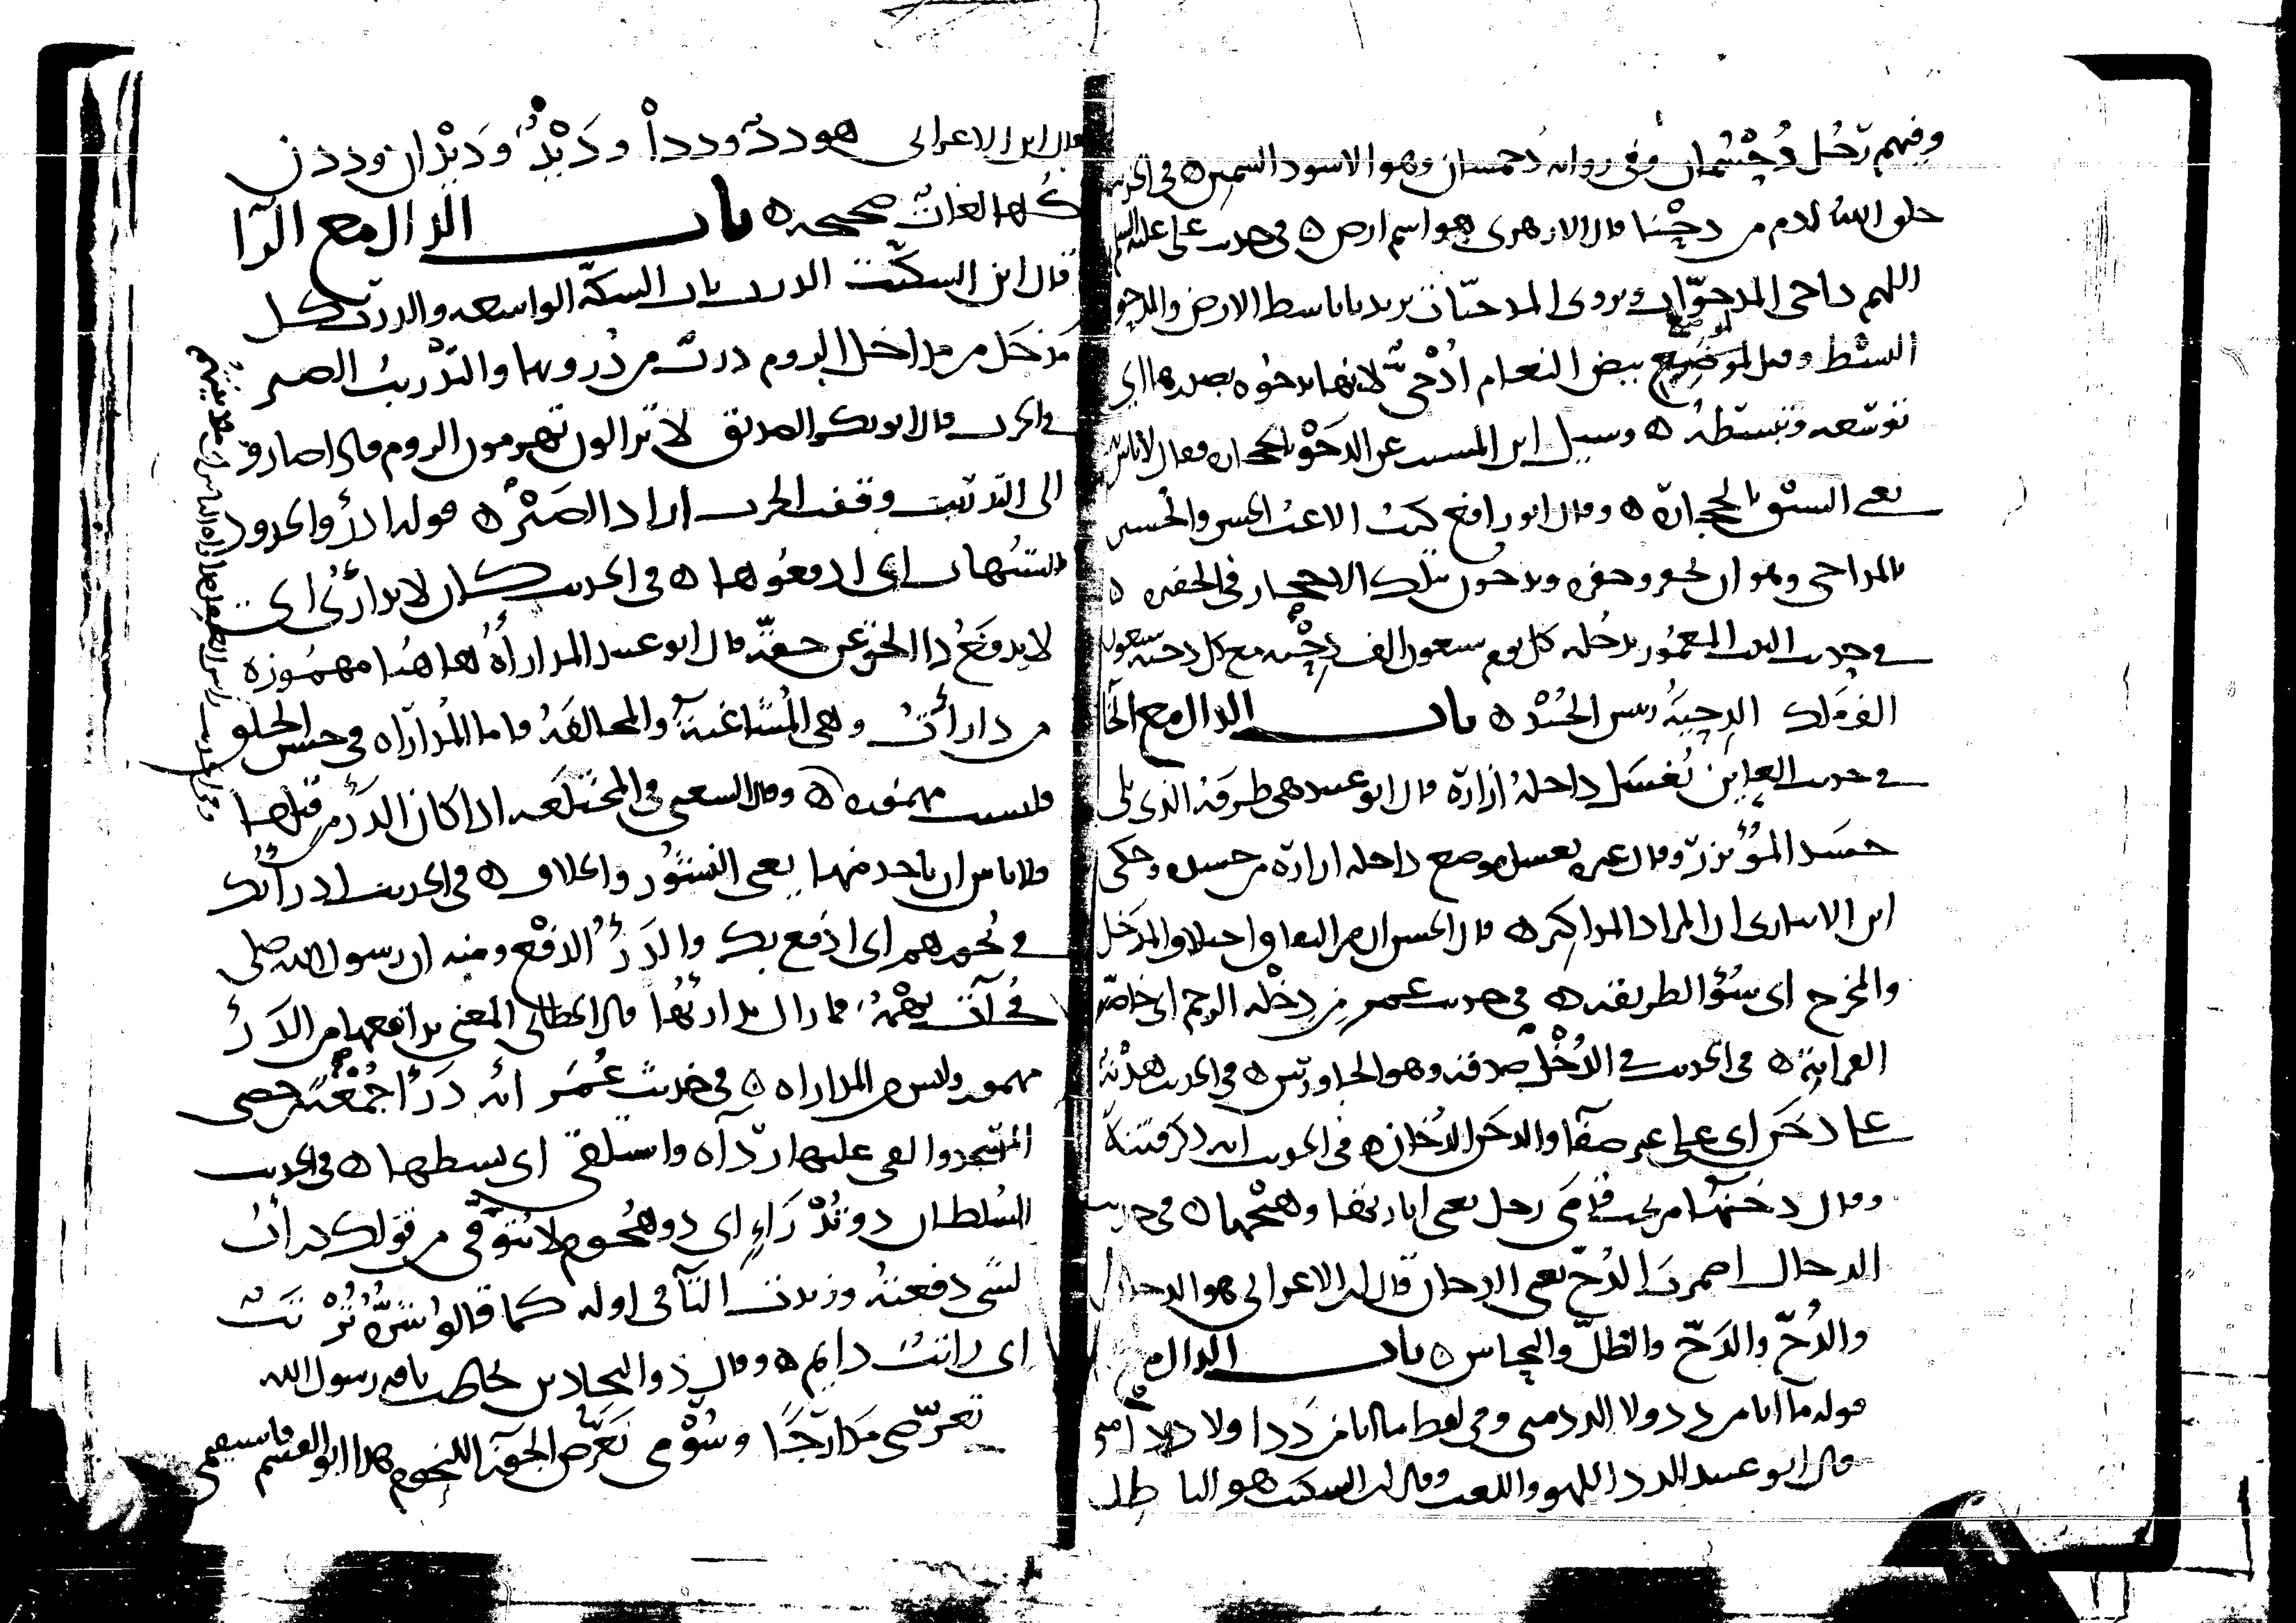 وفيهم رجل دحسمان وفي رواية دحمسان وهو الاسود السمين ه في الحديث
خلق الله آدم من دحنا قال الازهري هو اسم ارض ه في حديث علي عليه السلم
اللهم داحي المدحوات ويروى المدحيات يريد يا باسط الارض والمدحو
البسط وقيل لموضع بيض النعام ادحي لانها تدحوه بصدرها اي
توسعه وتبسطه ه وسيل ابن المسيب عن الدحو بالحجارة فقال لا باس
يعني السبق بالحجارة ه وقال ابو رافع كنت الاعب الحسن والحسين
بالمداحي وهو ان يحفر حفره ويدحون بتلك الاحجار في الحفره ه
في حديث البيت المعمور يدخله كل يوم سبعون الف دحية مع كل دحية سبعون
الف ملك الدحية رييس الجند ه باب الدال مع الخا
في حديث العاين يغسل داخلة ازاره قال ابو عبيد هي طرفه الذي يلي
جسد المؤتزر وقال غيره يغسل موضع داخلة ازاره من جسده وحكى
ابن الانباري ان المراد المذاكير ه قال الحسن ان من النفاق اختلاف المدخل
والمخرج اي سؤ الطريقه ه في حديث عمر من دخلة الرحم اي خاصة
القرابة ه في الحديث في الدخن صدقه وهو الجاورس ه في الحديث هدنة
على دخن اي على غير صفا والدخن الدخان ه في الحديث انه ذكر فتنة
وقال دخنها من تحت قدمي رجل يعني اثارتها وهيجها ه في حديث
الدجال اضمر له الدخ يعني الدخان قال ابن الاعرابي هو الدخان
والدخ والدخ والظل والنحاس ه باب الدال مع
قوله ما انا من دد ولا الدد مني وفي لفظ ما انا من ددا ولا ددا مني
قال ابو عبيد الدد اللهو واللعب وقال ابن السكيت هو الباطل
قال ابن الاعرابي هو دد وددا وديد وديدان وددن
كلها لغات صحيحه ه باب الدال مع الرا
قال ابن السكيت الدرب باب السكة الواسعه والدرب كل
مدخل من مداخل الروم درب من دروبها والتدريب الصبر
في الحرب قال ابو بكر الصديق لا تزالون تهزمون الروم فاذا صاروا
الى التدريب وقفت الحرب اراد الصبر ه قوله ادرؤا الحدود
بالشبهات اي ادفعوها ه في الحديث كان لا يدارئ اي
لا يدفع ذا الحق عن حقه قال ابو عبيد المدارأة هاهنا مهموزه
من دارأت وهي المشاغبة والمخالفه فاما المداراه في حسن الخلق
فليست مهموزه ه وقال الشعبي في المختلعه اذا كان الدرء من قبلها
فلا باس ان ياخذ منها يعني النشوز والخلاف ه في الحديث ادرأ بك
في نحورهم اي ادفع بك والدرء الدفع ومنه ان رسول الله صلى
فجآت بهمة فما زال يدارئها قال الخطابي المعنى يدافعها من الدرء
مهموز وليس من المداراه ه في حديث عمر انه درأ جمعة من حصى
المسجد والقى عليها ردآه واستلقى اي بسطها ه في الحديث
السلطان ذو تدراء اي ذو هجوم لا يتوقى من قولك درأت
لشي دفعته وزيدت التآ في اوله كما قالوا شره ترتب
اي راتب دايم ه وقال ذو البجادين يخاطب ناقة رسول الله
تعرضي مدارجا وسومي تعرض الجوزا للنجوم هذا ابو القسم فاستقيمي